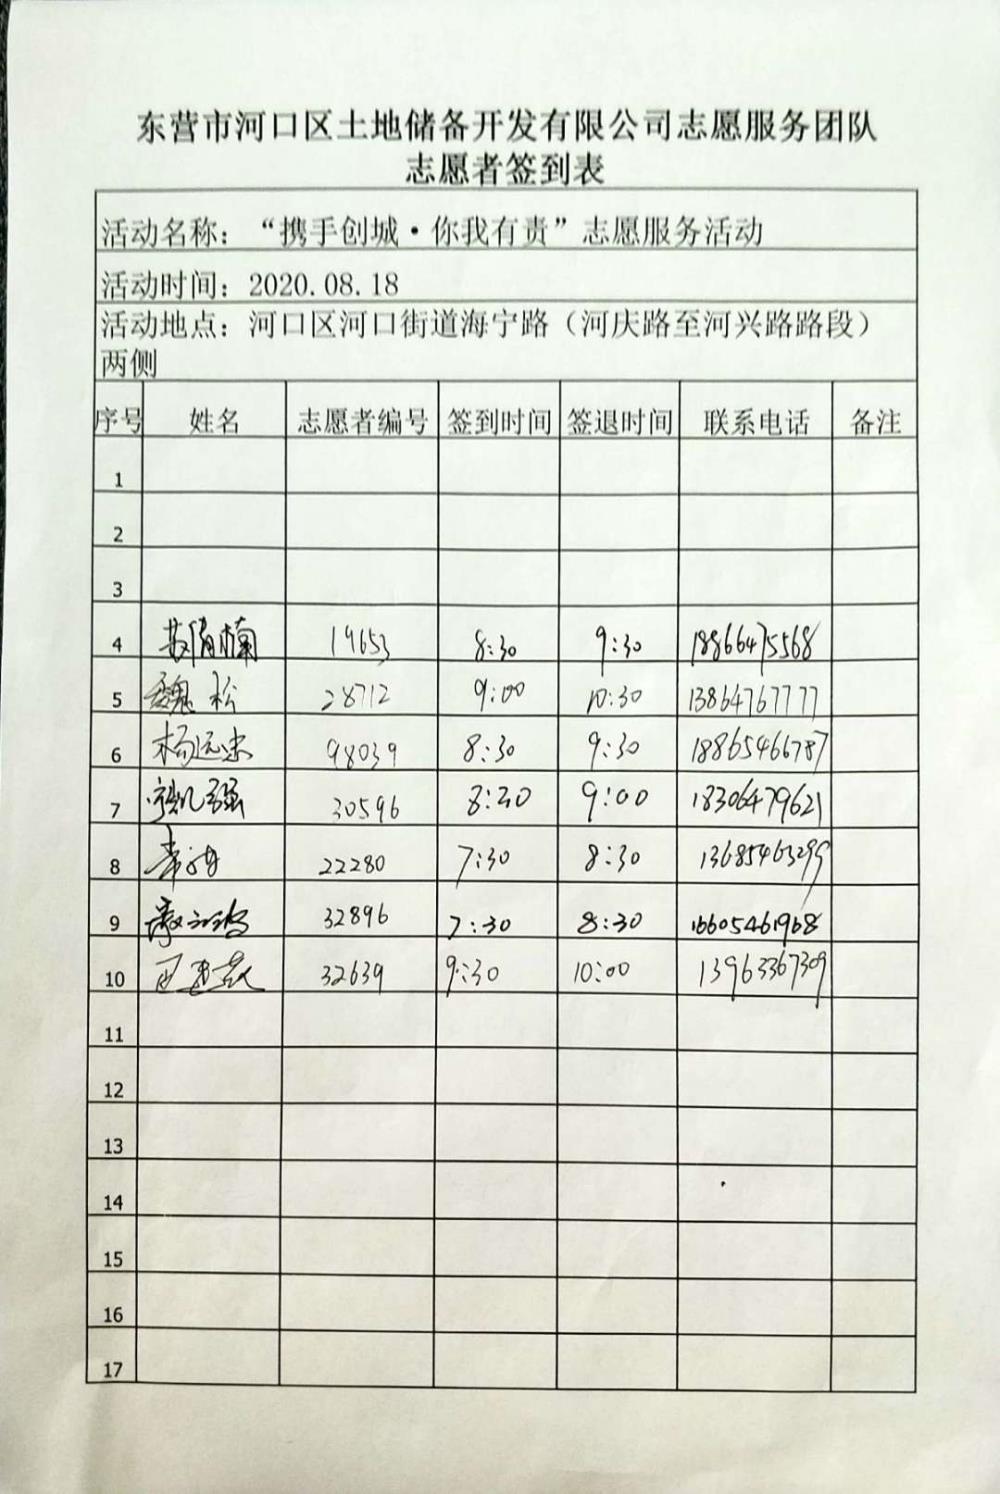 东营市河口区土地储备开发有限公司志愿服务团队
志愿者签到表
活动名称：“携手创城·你我有责”志愿服务活动
活动时间：2020.08.18
活动地点：河口区河口街道海宁路（河庆路至河兴路路段）
两侧
序号 姓名 志愿者编号 签到时间 签退时间 联系电话 备注
1
2
3
4 19653 8:30 9:30 18866475568
5 魏松 28712 9:00 10:30 13864767777
6 杨远忠 98039 8:30 9:30 18865466787
7 30596 8:20 9:00 18306479621
8 22280 7:30 8:30 13685463299
9 32896 7:30 8:30 16605461968
10 32639 9:30 10:00 13963367309
11
12
13
14
15
16
17